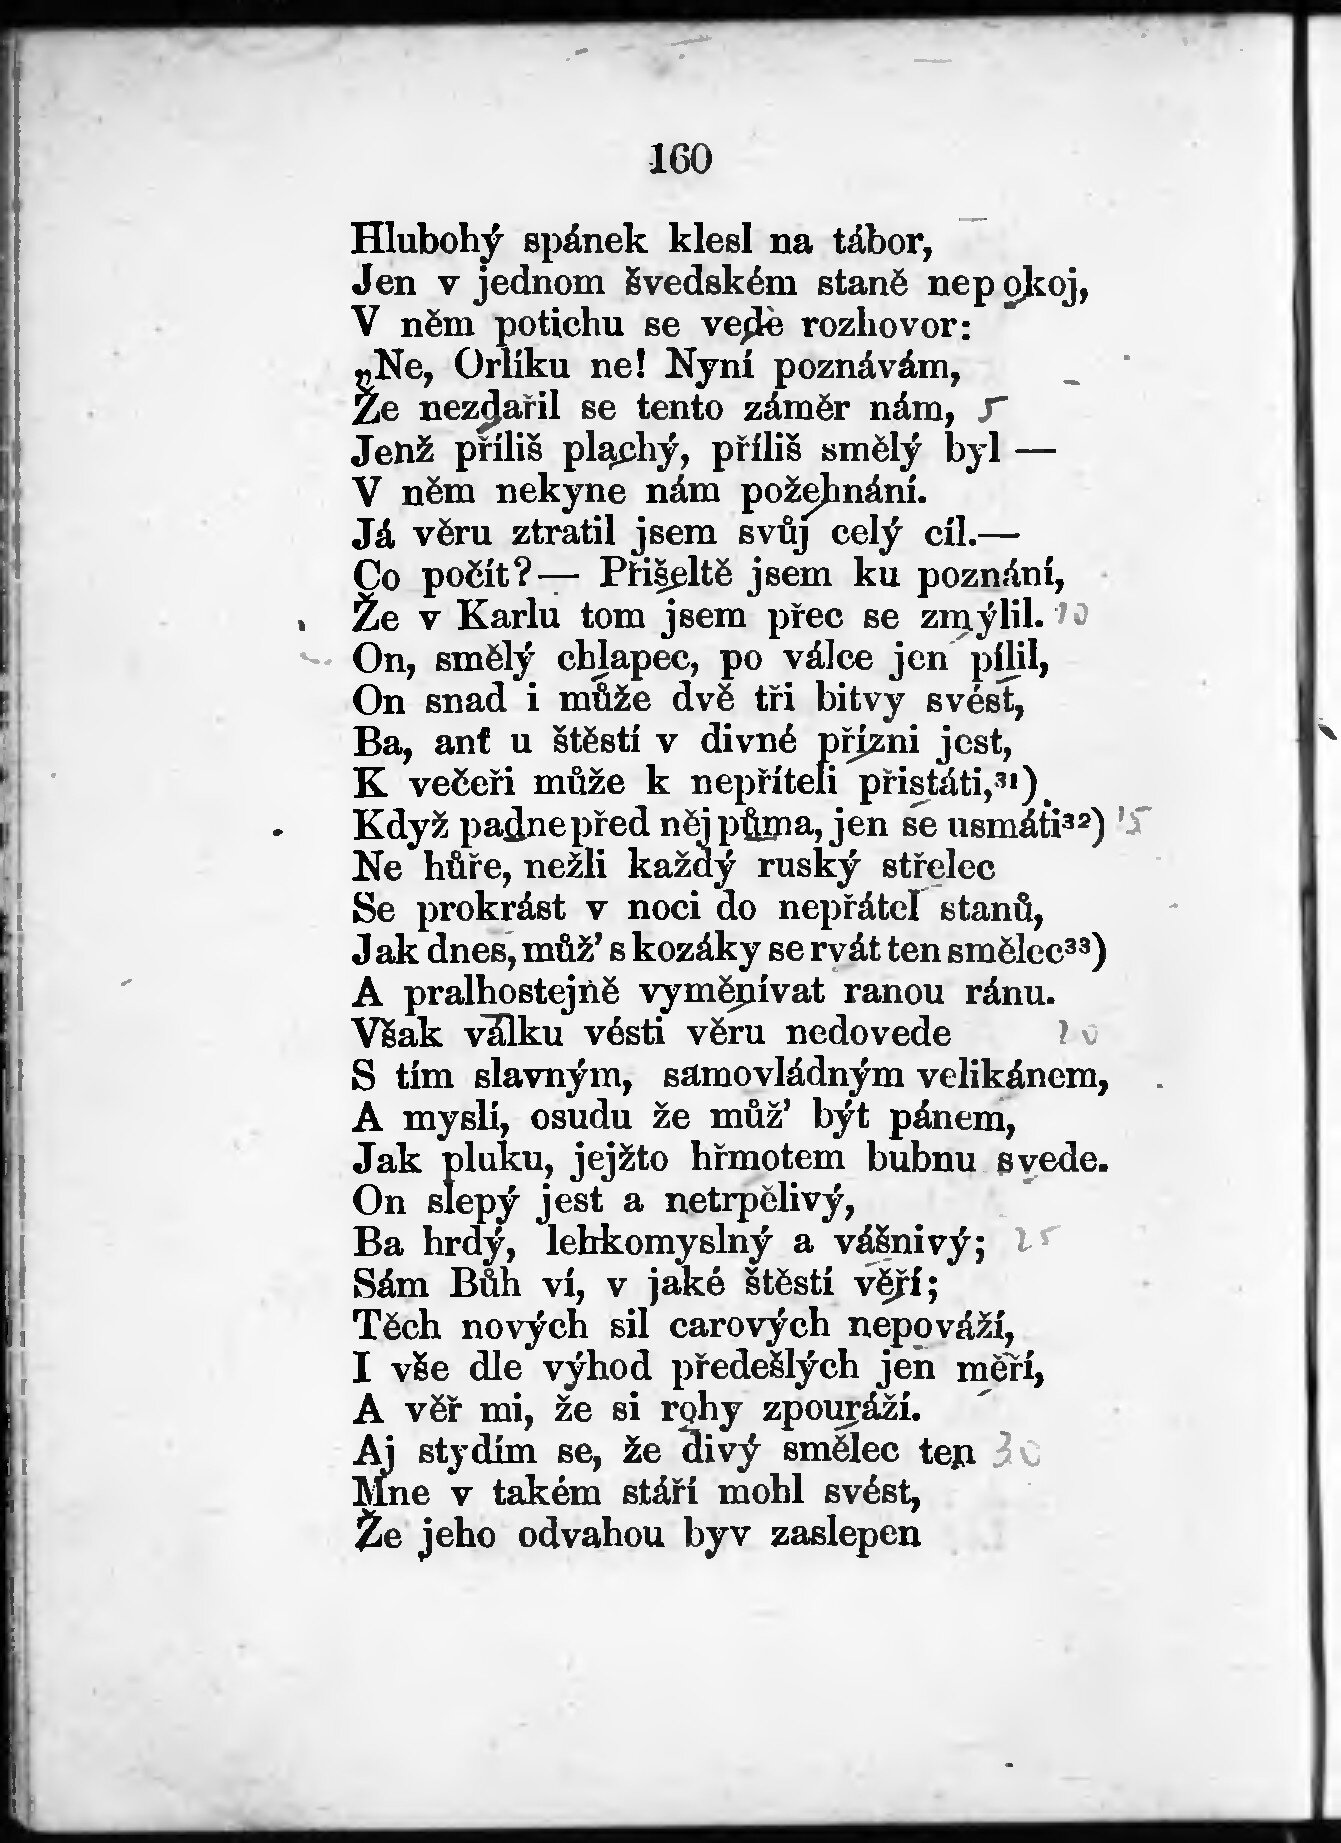 160
Hlubohý spánek klesl na tábor,
Jen v jednom švedském staně nepokoj,
V něm potichu se vede rozhovor:
„Ne, Orlíku ne! Nyní poznávám,
Že nezdařil se tento záměr nám, 5
Jenž příliš plachý, příliš smělý byl —
V něm nekyne nám požehnání.
Já věru ztratil jsem svůj celý cíl.—
Co počít?— Přišeltě jsem ku poznání,
Že v Karlu tom jsem přec se zmýlil. 10
On, smělý chlapec, po válce jen pílil,
On snad i může dvě tři bitvy svést,
Ba, anť u štěstí v divné přízni jest,
K večeři může k nepříteli přistáti,³¹)
Když padne před něj půma, jen se usmáti³²) 15
Ne hůře, nežli každý ruský střelec
Se prokrást v noci do nepřátel stanů,
Jak dnes, můž’ s kozáky se rvát ten smělec³³)
A pralhostejně vyměnívat ranou ránu.
Však válku vésti věru nedovede 20
S tím slavným, samovládným velikánem,
A myslí, osudu že můž’ být pánem,
Jak pluku, jejžto hřmotem bubnu svede.
On slepý jest a netrpělivý,
Ba hrdý, lehkomyslný a vášnivý; 25
Sám Bůh ví, v jaké štěstí věří;
Těch nových sil carových nepováží,
I vše dle výhod předešlých jen měří,
A věř mi, že si rohy zpouráží.
Aj stydím se, že divý smělec ten 30
Mne v takém stáří mohl svést,
Že jeho odvahou byv zaslepen